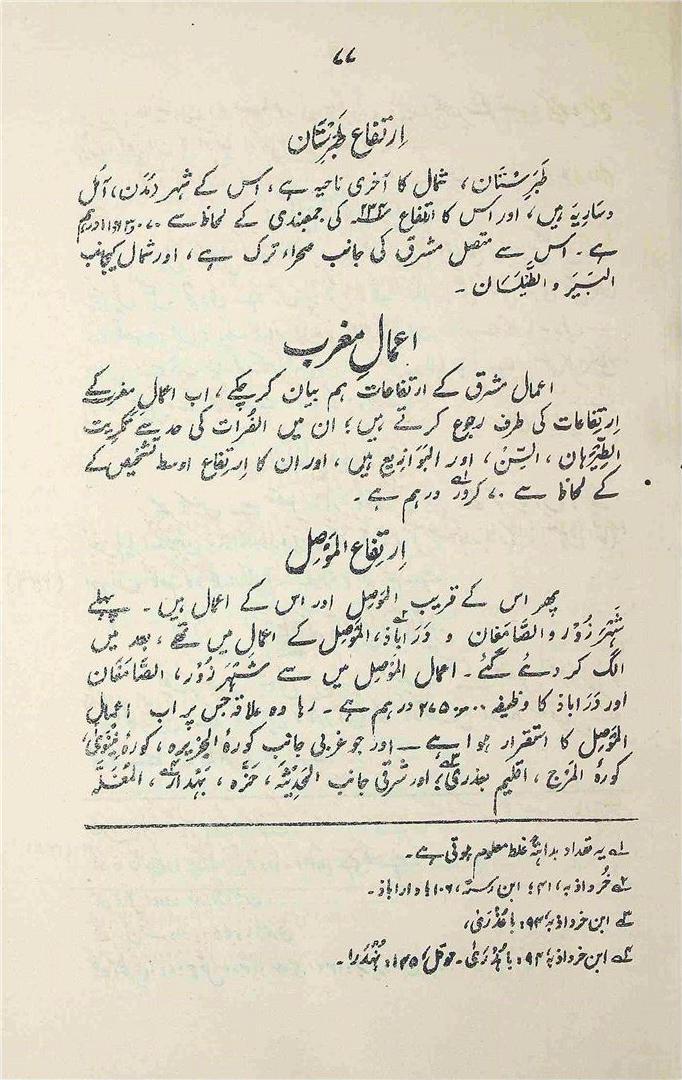 ۷۷
اِرتفاع طَبَرِستَان
طَبَرِستَان، شمال کا آخری ناحیہ ہے، اس کے شہر آمُل
و ساریہ ہیں، اور اس کا ارتفاع ۲۳۴ھ کی جمعبندی کے لحاظ سے درہم
ہے۔ اس سے متصل مشرق کی جانب صحراء ترک ہے، اور شمال کیجانب
البَبَر و الطَّیلَسان۔
اعمالِ مغرب
اعمال مشرق کے ارتفاعات ہم بیان کرچکے، اب اعمالِ مغرب کے
اِرتفاعات کی طرف رجوع کرتے ہیں؛ ان میں الفُرات کی حد سے تکریت
الطِّیرَہان، السِّنّ، اور البَوازِیج ہیں، اور ان کا اِرتفاع اوسط تشخیص کے
کے لحاظ سے ۷۰ کروڑ لہ درہم ہے۔
اِرتفاع المَوصِل
پھر اس کے قریب المَوصِل اور اس کے اعمال ہیں۔ پہلے
شَہرَ زُوْر و الصَّامَغان و دَرَاباذ ۲ے، المَوصِل کے اعمال میں تھے، بعد میں
الگ کر دئے گئے۔ اعمال المَوصِل میں سے شَہرَ زُوْر، الصَّامَغان
اور دَرَاباذ کا وظیفہ ۲۷۵۰۰۰۰ درہم ہے۔ رہا وہ علاقہ جس پر اب اعمال
المَوصِل کا استقرار ہوا ہے — اور جو غربی جانب کورۂ الجزیرہ، کورۂ نِینَویٰ،
کورۂ المَرج، اقلیم بعذریٰ ۳ے؛ اور شرقی جانب الحَدِیثَہ، حَزَّہ، بَہُدارٰ ۴ے، المُغلَّہ
۱ے یہ تعداد بداہۃً غلط معلوم ہوتی ہے۔
۲ے خُرداذبہ، ۴۱؛ ابن رستہ، ۱۰۶: داراباذ۔
۳ے ابن خرداذبہ، ۹۴: باعَذْرَیٰ،
۴ے ابن خرداذبہ، ۹۴: باہُدْرَیٰ۔ حوقل، ۱۴۵: بُہُدرا۔